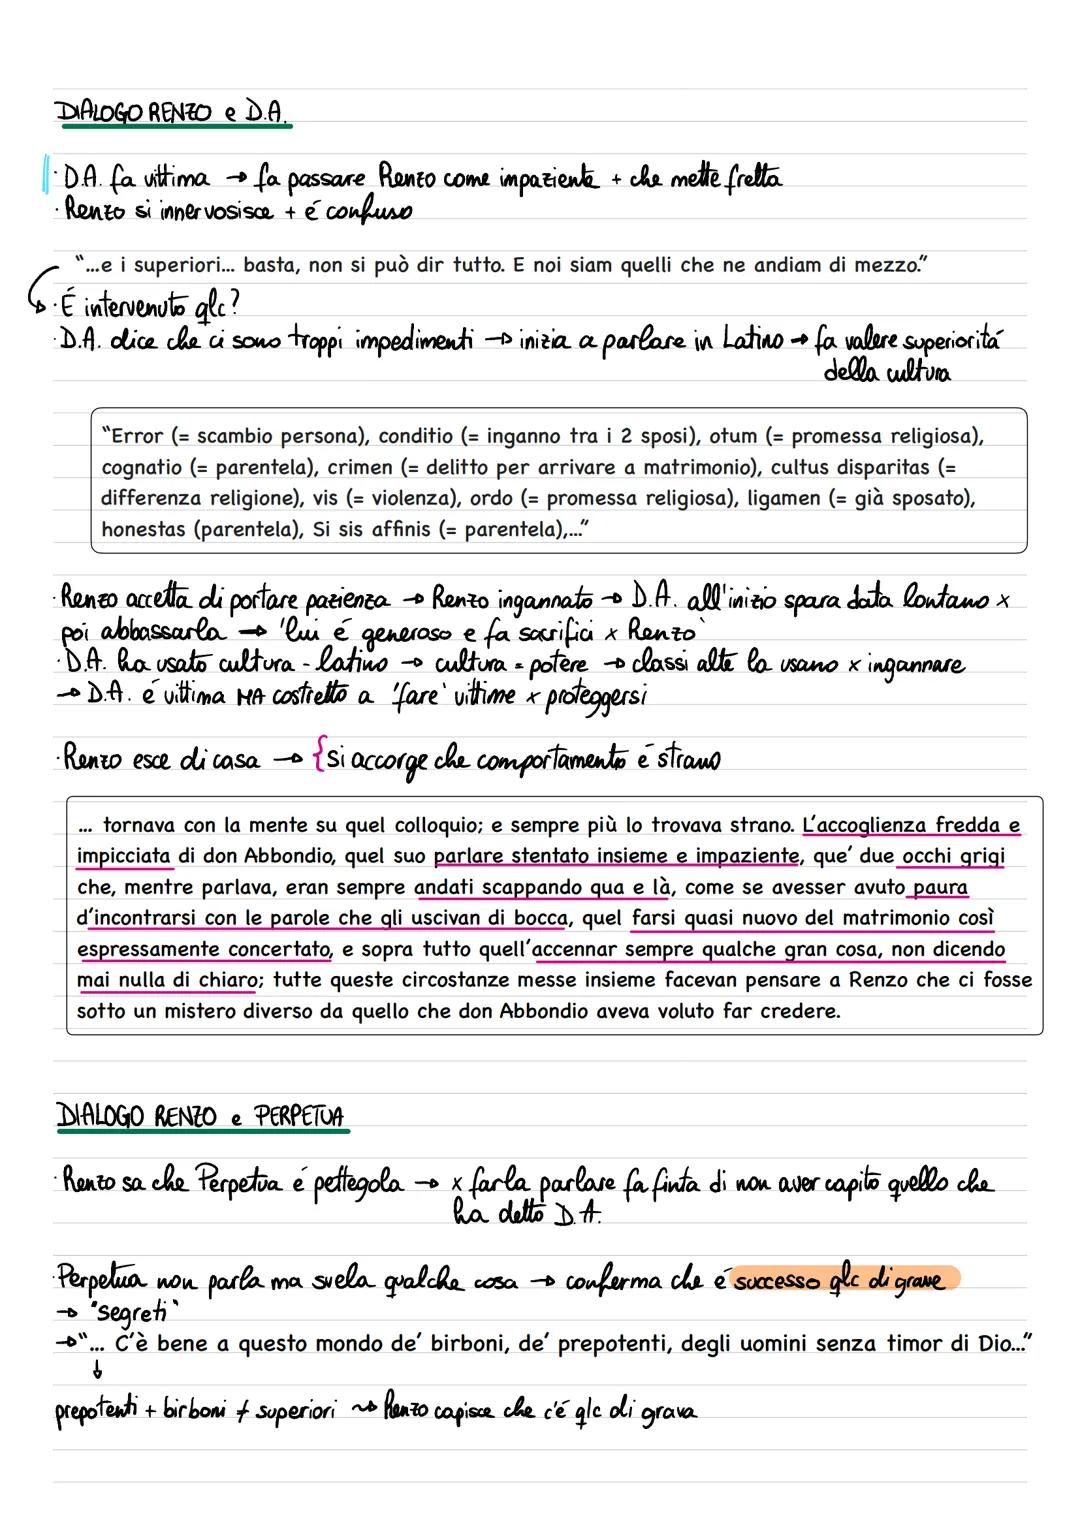 DIALOGO RENZO e D.A.
· D.A. fa vittima → fa passare Renzo come impaziente + che mette fretta
· Renzo si innervosisce + é confuso
“...e i superiori... basta, non si può dir tutto. E noi siam quelli che ne andiam di mezzo.”
· É intervenuto qlc?
· D.A. dice che ci sono troppi impedimenti → inizia a parlare in Latino → fa valere superioritá
della cultura
“Error (= scambio persona), conditio (= inganno tra i 2 sposi), otum (= promessa religiosa),
cognatio (= parentela), crimen (= delitto per arrivare a matrimonio), cultus disparitas (=
differenza religione), vis (= violenza), ordo (= promessa religiosa), ligamen (= già sposato),
honestas (parentela), Si sis affinis (= parentela),...”
· Renzo accetta di portare pazienza → Renzo ingannato → D.A. all'inizio spara data lontano x
poi abbassarla → 'lui é generoso e fa sacrifici x Renzo'
· D.A. ha usato cultura - latino → cultura = potere → classi alte la usano x ingannare
→ D.A. é vittima MA costretto a 'fare' vittime x proteggersi
· Renzo esce di casa → {si accorge che comportamento é strano
... tornava con la mente su quel colloquio; e sempre più lo trovava strano. L’accoglienza fredda e
impicciata di don Abbondio, quel suo parlare stentato insieme e impaziente, que’ due occhi grigi
che, mentre parlava, eran sempre andati scappando qua e là, come se avesser avuto paura
d’incontrarsi con le parole che gli uscivan di bocca, quel farsi quasi nuovo del matrimonio così
espressamente concertato, e sopra tutto quell’accennar sempre qualche gran cosa, non dicendo
mai nulla di chiaro; tutte queste circostanze messe insieme facevan pensare a Renzo che ci fosse
sotto un mistero diverso da quello che don Abbondio aveva voluto far credere.
DIALOGO RENZO e PERPETUA
· Renzo sa che Perpetua é pettegola → x farla parlare fa finta di non aver capito quello che
ha detto D.A.
· Perpetua non parla ma svela qualche cosa → conferma che é successo qlc di grave
→ "segreti"
→“... C’è bene a questo mondo de’ birboni, de’ prepotenti, degli uomini senza timor di Dio...”
↓
prepotenti + birboni ≠ superiori ⇝ Renzo capisce che c'é qlc di grava